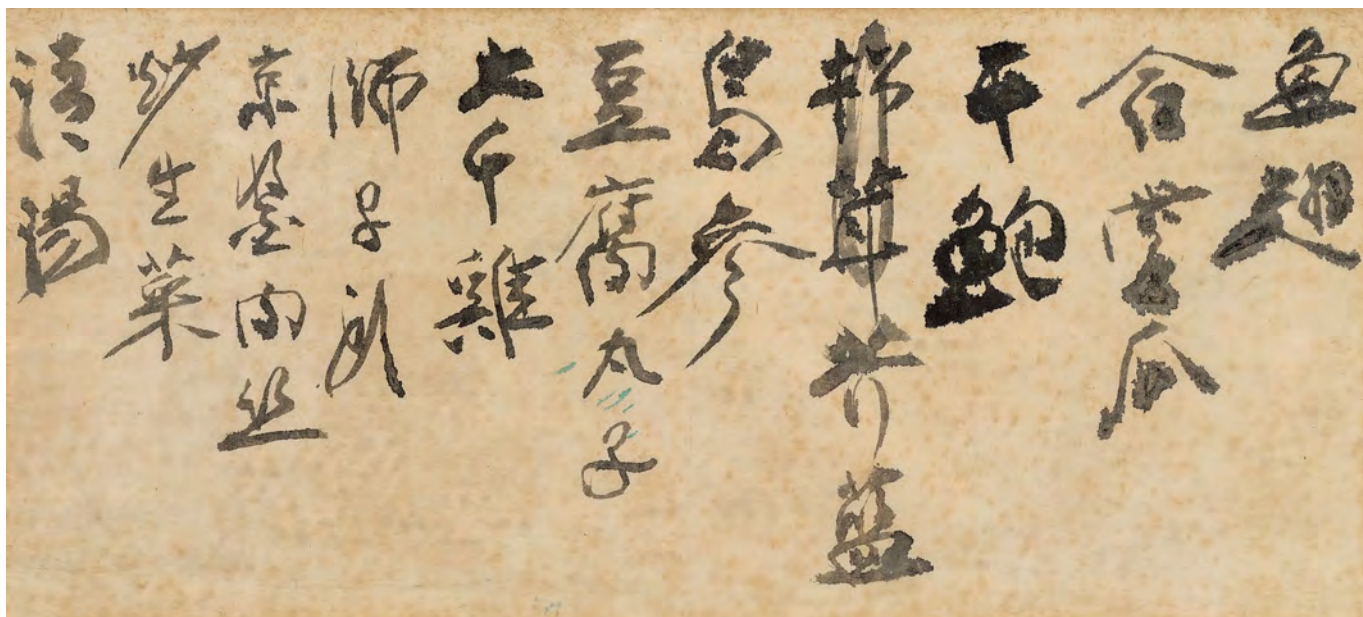 魚翅
瓜
干鮑
松茸芥藍
烏參
豆腐丸子
大千雞
獅子頭
京醬肉丝
炒生菜
清湯